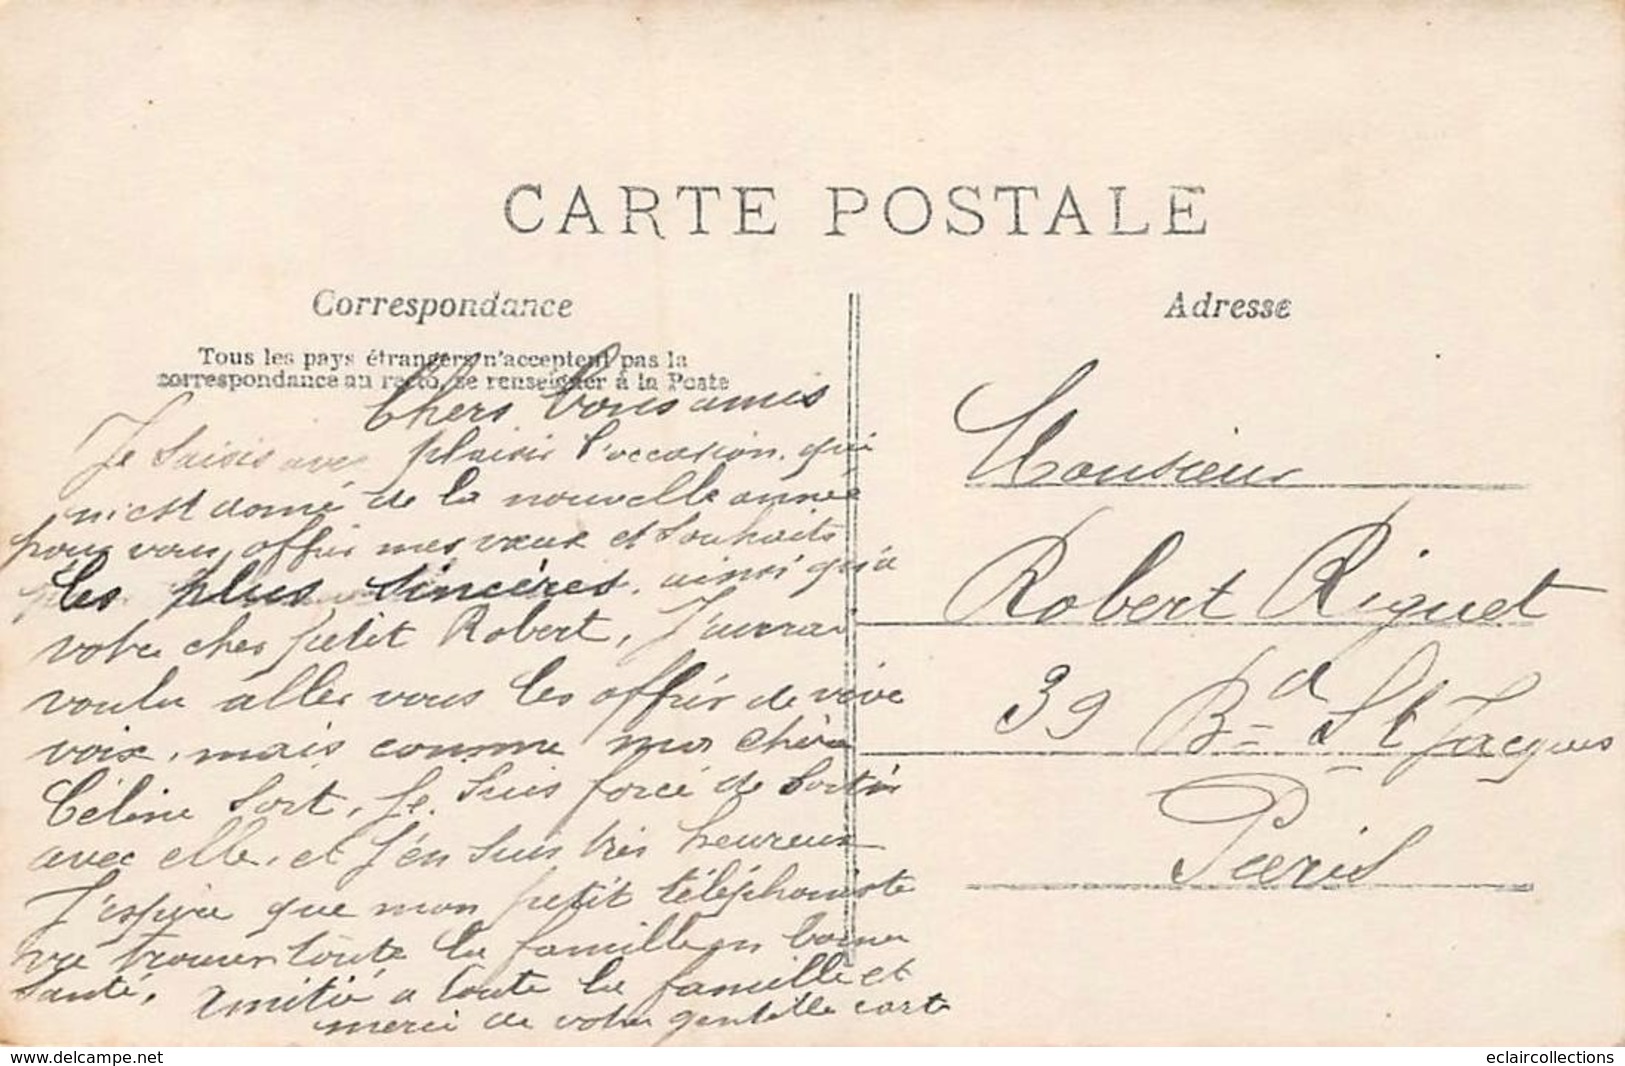 CARTE POSTALE
Correspondance
Tous les pays étrangers n'acceptent pas la
correspondance au recto, se renseigner à la Poste
Chers Vous amis
Je saisis avec plaisir l'occasion, qui
m'est donné de la nouvelle année
pour vous offrir mes vœux et souhaits
les plus sincères, ainsi qu'a
votre cher petit Robert, J'aurrai
voulu aller vous les offrir de vive
voix, mais comme ma chère
Céline sort, je suis forcé de sortir
avec elle, et j'en suis très heureux
J'espère que mon petit téléphoniste
va trouver toute la famille en bonne
santé, Amitié a toute la famille et
merci de votre gentille carte
Adresse
Monsieur
Robert Riguet
39 Bd St Jacques
Paris
www.delcampe.net
eclaircollections